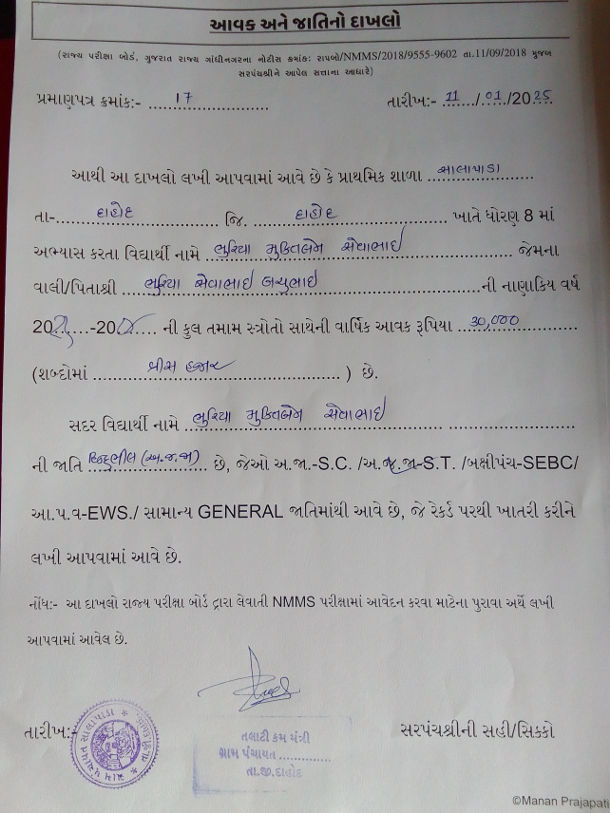 આવક અને જાતિનો દાખલો
(રાજ્ય પરીક્ષા બોર્ડ, ગુજરાત રાજ્ય ગાંધીનગરના નોટીસ ક્રમાંક: રાપબો/NMMS/2018/9555-9602 તા.11/09/2018 મુજબ
સરપંચશ્રીને આપેલ સત્તાના આધારે)
પ્રમાણપત્ર ક્રમાંક:- 17 તારીખ:- 11/01/2025
આથી આ દાખલો લખી આપવામાં આવે છે કે પ્રાથમિક શાળા સાલાપાડા
તા-દાહોદ જિ. દાહોદ ખાતે ધોરણ 8 માં
અભ્યાસ કરતા વિદ્યાર્થી નામે ભુરિયા મુક્તિબેન સેવાભાઇ જેમના
વાલી/પિતાશ્રી ભુરિયા સેવાભાઇ બચુભાઇ ની નાણાકિય વર્ષ
20 -20 ની કુલ તમામ સ્ત્રોતો સાથેની વાર્ષિક આવક રૂપિયા 30,000
(શબ્દોમાં ત્રીસ હજાર ) છે.
સદર વિદ્યાર્થી નામે ભુરિયા મુક્તિબેન સેવાભાઇ
ની જાતિ હિન્દુભીલ (અ.જ.જા) છે, જેઓ અ.જા.-S.C. /અ.જ.જા-S.T. /બક્ષીપંચ-SEBC/
આ.પ.વ-EWS./ સામાન્ય GENERAL જાતિમાંથી આવે છે, જે રેકર્ડ પરથી ખાતરી કરીને
લખી આપવામાં આવે છે.
નોંધ:- આ દાખલો રાજ્ય પરીક્ષા બોર્ડ દ્વારા લેવાતી NMMS પરીક્ષામાં આવેદન કરવા માટેના પુરાવા અર્થે લખી
આપવામાં આવેલ છે.
તારીખ:- સરપંચશ્રીની સહી/સિક્કો
ગ્રામ પંચાયત સાલાપાડા
તલાટી કમ મંત્રી
ગ્રામ પંચાયત
તા.જી.દાહોદ
©Manan Prajapati